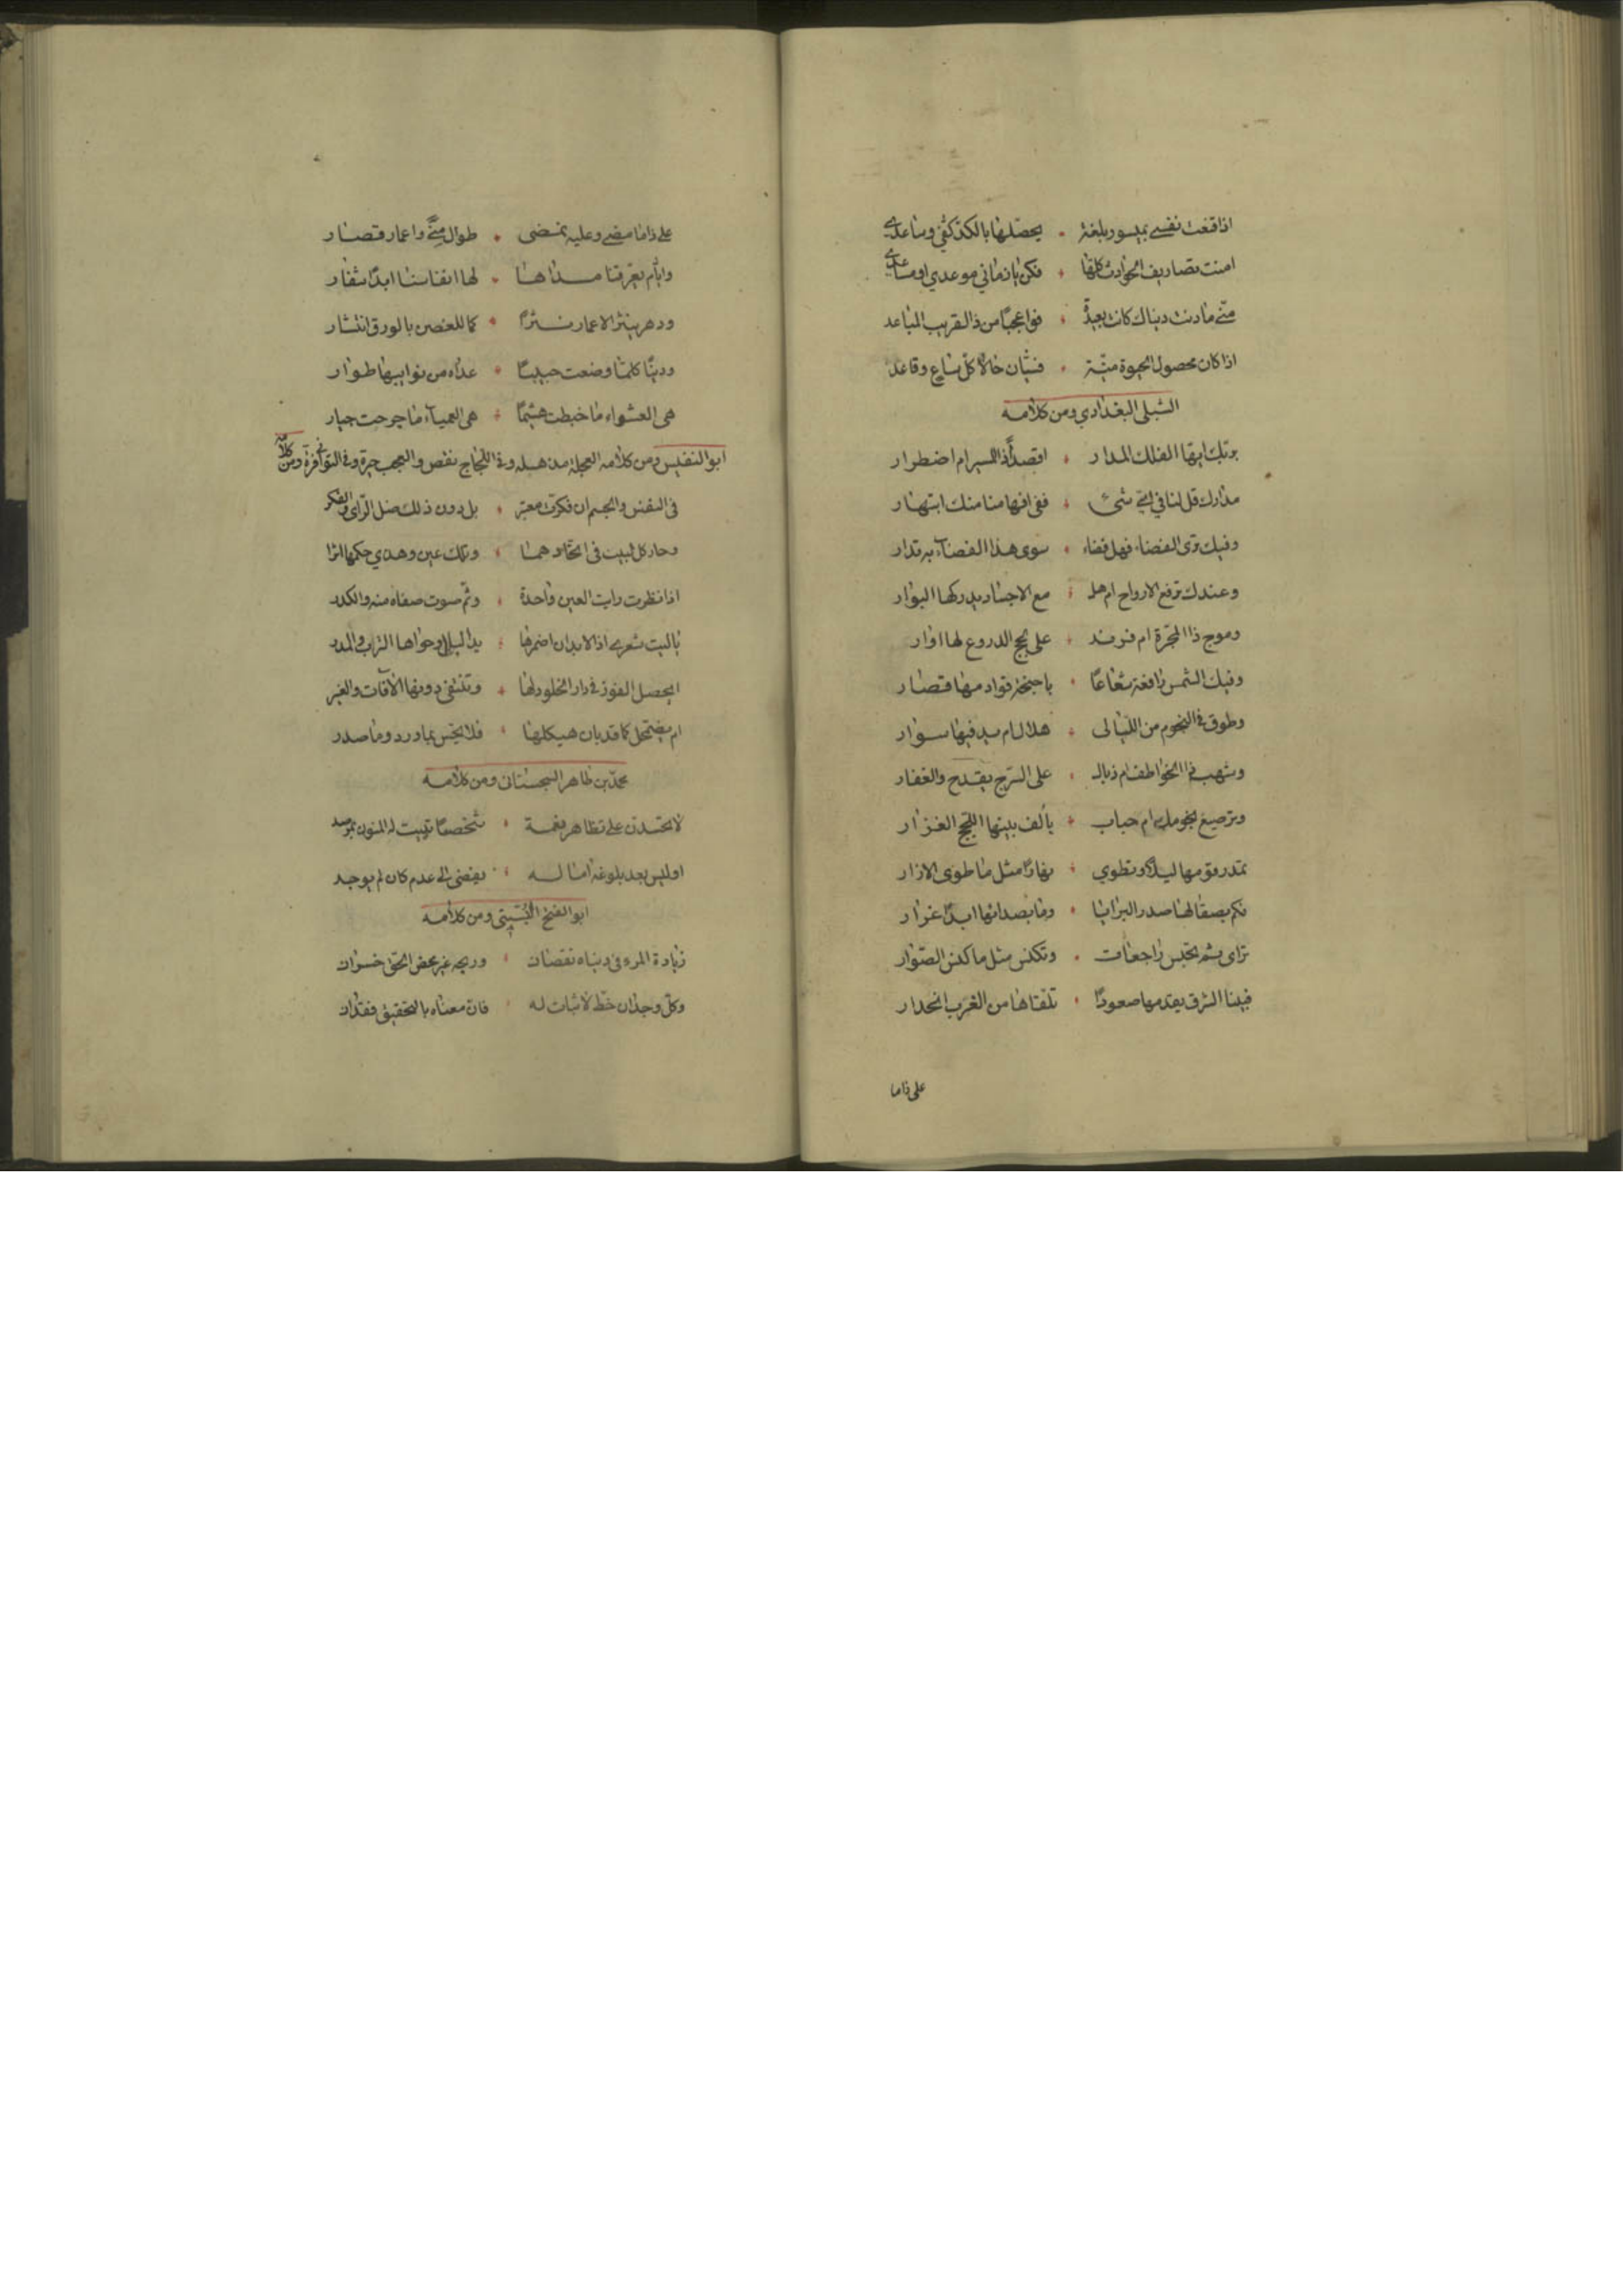 اذا قنعت نفسى بميسور بلغة ٠ يحصّلها بالكد كفّى وساعدى
امنت تصاريف الحوادث كلها ٠ فكن يا زمانى موعدي او مساعدى
متى ما دنت دنياك كانت بعيدة ٠ فوا عجبًا من ذا القريب المباعد
اذا كان محصول الحيوة منيّة ٠ فسيّان حالا كلّ ساعٍ وقاعد
الشبلى البغدادي ومن كلامه
بربّك ايها الفلك المدار ٠ اقصدًا ذا المسير ام اضطرار
مدارك قل لنا في اىّ شىء ٠ ففى افهامنا منك ابتهار
وفيك نرى الفضاء فهل فضاء ٠ سوى هذا الفضاء به تدار
وعندك ترفع الارواح ام هل ٠ مع الاجساد يدركها البوار
وموج ذا المجرّة ام فرند ٠ على لجج الدروع لها اوار
وفيك الشمس رافعة شعاعًا ٠ باجنحة قوادمها قصار
وطوق فى النجوم من الليالى ٠ هلالك ام يد فيها سوار
وشهب ذا الخواطف ام ذبال ٠ على السرج يقدح والغفار
وترصيع نجومك ام حباب ٠ يألف بينها اللجج الغزار
تمد رقومها ليلًا وتطوي ٠ نهارًا مثل ما طوى الازار
فكم بصقالها صدر البرايا ٠ وما يصدا لها ابدًا غرار
تراى ثم تخنس راجعات ٠ وتكنس مثل ما كنس الصّوار
فبينا الشرق يقدمها صعودًا ٠ تلقاها من الغرب انحدار
على ذا ما
على ذا ما مضى وعليه نمضى ٠ طوال منىً واعمار قصار
وايّام تعرفنا مداها ٠ لها انفاسنا ابدًا شفار
ودهر ينثر الاعمار نثرًا ٠ كما للغصن بالورق انتشار
ودنيًا كلما وضعت جنينًا ٠ غذاه من نوايبها طوار
هى العشواء ما خبطت هشيمًا ٠ هى العمياء ما جرحت جبار
ابو النفيس ومن كلامه العجلة مذهله وفى اللجاج نقص والعجب حيرة وفى التوانى فرة ومن كلامه
فى النفس والجسم ان فكرت معتبر ٠ بل دون ذلك ضل الرّاى والفكر
وحار كل لبيب فى اتحادهما ٠ وتلك عين وهذي حكمها اثرا
اذا نظرت رايت العين واحدة ٠ وثم صوت صفاه منه والكدر
يا ليت شعرى اذا الابدان اضمرها ٠ يد البلى وحواها الترب والمدر
ايحصل الفوز فى دار الخلود لها ٠ وتنتفى دونها الآفات والغير
ام يضمحل كما قد بان هيكلها ٠ فلا يحس بما ورد وما صدر
محمّد بن طاهر السجستانى ومن كلامه
لا تحسدن على تظاهر نعمة ٠ شخصًا تبيت له المنون بمرصد
اوليس بعد بلوغه اماله ٠ يفضى الى عدم كان لم يوجد
ابو الفتح البُستِى ومن كلامه
زيادة المرء فى دنياه نقصان ٠ وربحه غير محض الحق خسران
وكلّ وجدان حظّ لا ثبات له ٠ فان معناه بالتحقيق فقدان